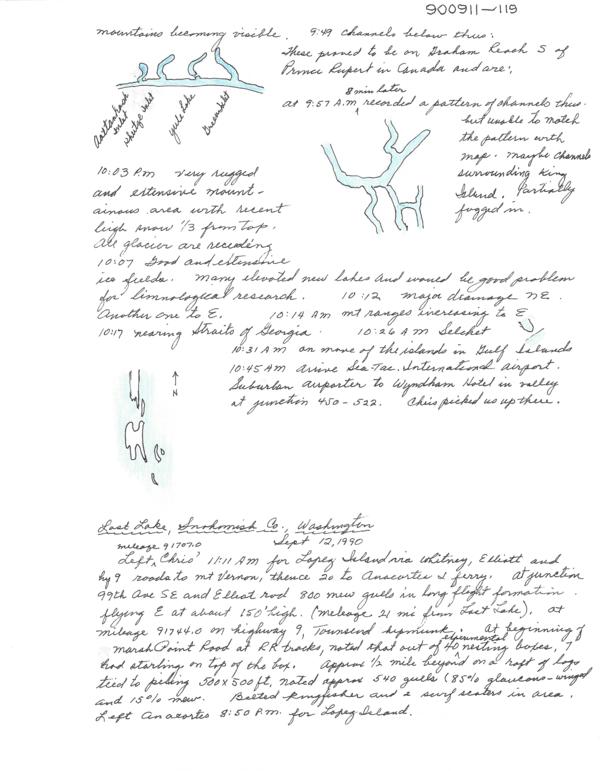 900911-119
mountains becoming visible. 9:49 channels below thus:
These proved to be on Graham Reach S of
Prince Rupert in Canada and are:
8 min later
at 9:57 A.M recorded a pattern of channels thus.
but unable to match
the pattern with
map. maybe channels
surrounding King
Island. Partially
fogged in.
Inlet
Whidge Inlet
Yule Lake
Green Inlet
10:03 P.m very rugged
and extensive mount-
ainous area with recent
high snow 1/3 from top.
All glacier are receeding
10:07 Good and extensive
ice fields. Many elevated new lakes and would be good problem
for limnological research. 10:12 major drainage NE.
Another one to E. 10:14 Am mt ranges increasing to E
10:17 nearing Straits of Georgia. 10:26 A M Selchet
10:31 Am on move of the islands in Gulf Islands
10:45 AM arrive Sea Tac. International airport.
Suburban airporter to Wyndham Hotel in valley
at junction 450-522. Chris picked us up there.
N
Lost Lake, Snohomish Co., Washington
mileage 91707.0 Sept 12, 1990
Left Chris' 11:11 AM for Lopez Island via Whitney, Elliott and
hy 9 roads to mt Vernon, thence 20 to Anacortes & ferry. At junction
99th Ave SE and Elliot rod 800 mew gulls in long flight formation
flying E at about 150' high. (mileage 2 1 mi from Lost Lake). at
mileage 91744.0 on highway 9, Townsend chipmunk. At beginning of
Marsh Point Road at RR tracks, noted that out of 40 experimental nesting boxes, 7
had starling on top of the box. Approx 1/2 mile beyond on a raft of logs
tied to piling 500 x 500 ft, noted approx 540 gulls (85% glaucous-winged
and 15% mew. Belted Kingfisher and 2 surf scoters in area.
Left Anacortes 8:50 P.m. for Lopez Island.